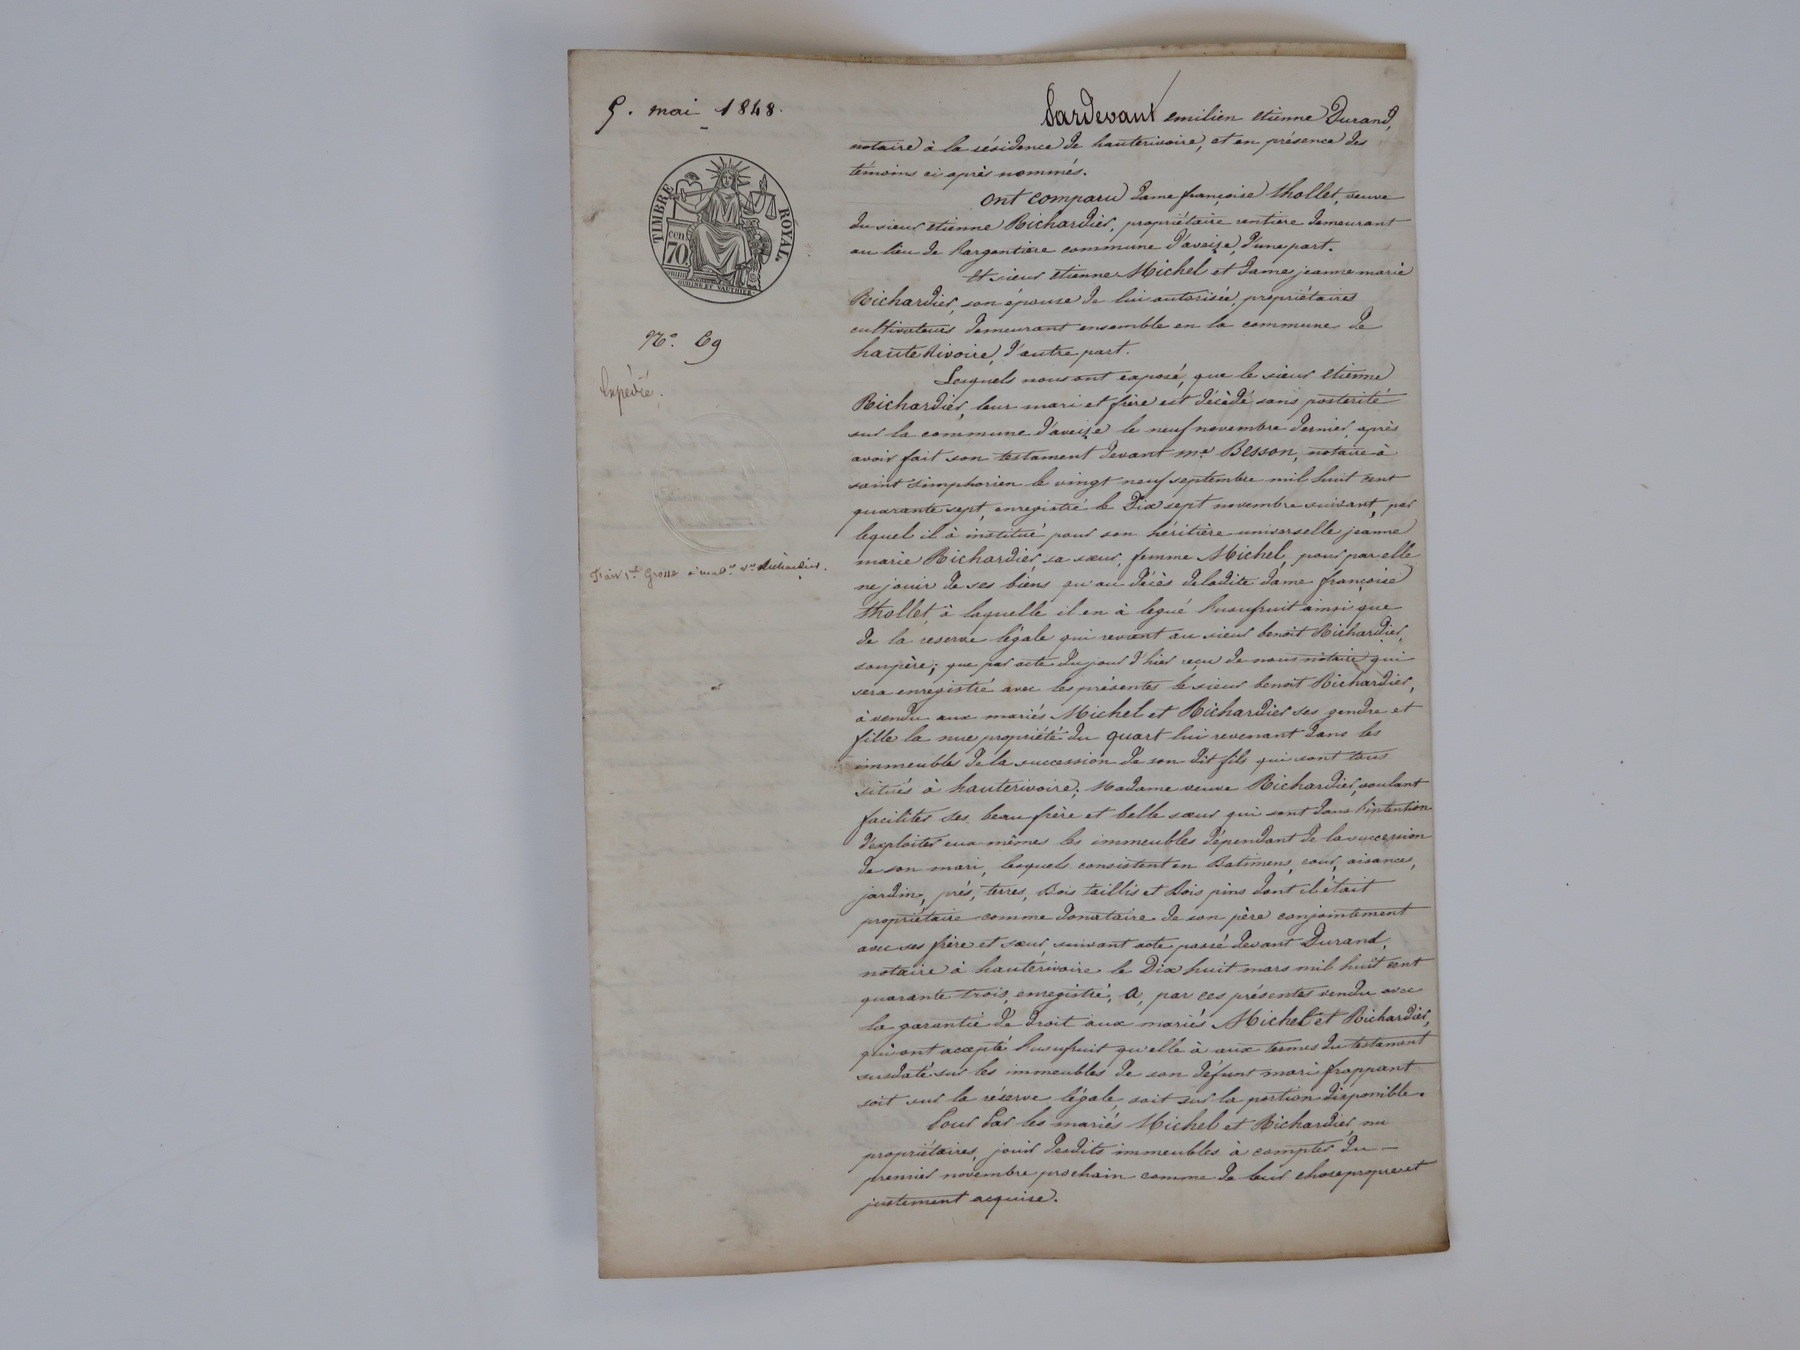 5. mai 1848.
TIMBRE ROYAL
cen
70
OUDINÉ ET VAUTHIER
N.° 69
Expédié.
Pardevant emilien etienne Durand,
notaire à la résidence de hauterivoire, et en présence des
témoins ci après nommés.
Ont comparu dame françoise thollet, veuve
du sieur etienne Richardier, propriétaire rentiere demeurant
au lieu de Largentiere commune d'aveize, d'une part.
Et sieur etienne Michel et dame jeanne marie
Richardier, son épouse de lui autorisée, propriétaires
cultivateurs demeurant ensemble en la commune de
haute Rivoire, d'autre part.
Lesquels nous ont exposé, que le sieur etienne
Richardier, leur mari et frère est décèdé sans posterité
sur la commune d'aveize le neuf novembre dernier, après
avoir fait son testament devant m.e Besson, notaire à
saint simphorien le vingt neuf septembre mil huit cent
quarante sept, enregistré le Dix sept novembre suivant, par
lequel il à institué pour son héritière universelle jeanne
marie Richardier sa sœur, femme Michel, pour par elle
ne jouir de ses biens qu'au décès de ladite dame françoise
thollet, à laquelle il en à legué l'usufruit ainsi que
de la reserve légale qui revient au sieur benoît Richardier,
son père; que par acte du jour d'hier reçu de nous notaire qui
sera enregistré avec les présentes le sieur benoit Richardier,
à vendu aux mariés Michel et Richardier ses gendre et
fille la nue propriété du quart lui revenant dans les
immeubles de la succession de son dit fils qui sont tous
situés à hauterivoire; Madame veuve Richardier, voulant
faciliter ses beau frère et belle sœur qui sont dans l'intention
d'exploiter eux mêmes les immeubles dépendant de la succession
de son mari, lesquels consistent en Batimens, cour, aisances,
jardin, prés, terres, Bois taillis et Bois pins dont il était
propriétaire comme donataire de son père conjointement
avec ses frère et sœur suivant acte passé devant Durand,
notaire à hauterivoire le Dix huit mars mil huit cent
quarante trois, enregistré, A, par ces présentes vendu avec
la garantie de droit aux mariés Michel et Richardier,
qui ont accepté l'usufruit qu'elle à aux termes du testament
susdaté sur les immeubles de son défunt mari frappant
soit sur la réserve légale, soit sur la portion disponible.
Pour Par les mariés Michel et Richardier, nu
propriétaires, jouir desdits immeubles à compter du
premier novembre prochain comme de leur chose propre et
justement acquise.